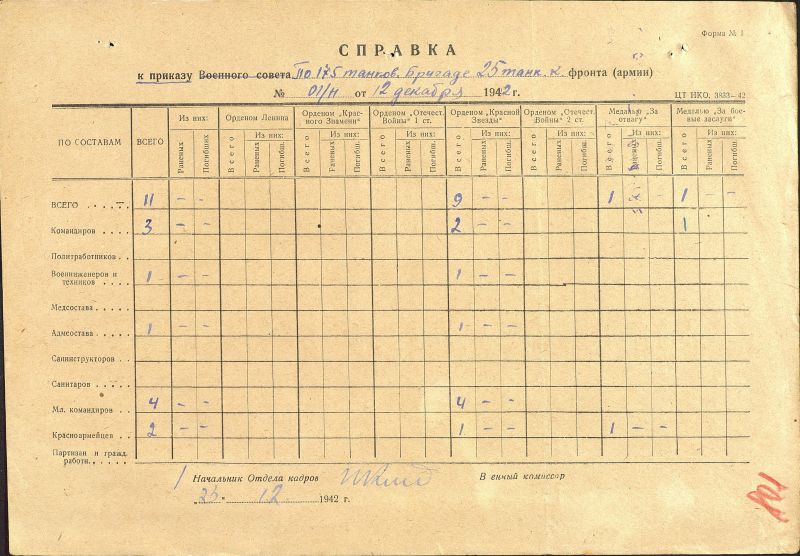 Форма № 1
СПРАВКА
к приказу Военного совета По 175 танков. Бригаде 25 танк. к. фронта (армии)
№ 01/н от 12 декабря 1942 г.
ЦТ НКО. 3833—42
ПО СОСТАВАМ ВСЕГО Из них: Орденом Ленина Орденом „Красного Знамени“ Орденом „Отечест. Войны“ 1 ст. Орденом „Красной Звезды“ Орденом „Отечест. Войны“ 2 ст. Медалью „За отвагу“ Медалью „За боевые заслуги“
Раненых Погибших Всего Из них: Раненых Погибш. Всего Из них: Раненых Погибш. Всего Из них: Раненых Погибш. Всего Из них: Раненых Погибш. Всего Из них: Раненых Погибш. Всего Из них: Раненых Погибш. Всего Из них: Раненых Погибш.
ВСЕГО 11 - - 9 - - 1 - - 1 - -
Командиров 3 - - 2 - - 1
Политработников
Военинженеров и
техников 1 - - 1 - -
Медсостава
Адмсостава 1 - - 1 - -
Санинструкторов
Санитаров
Мл. командиров 4 - - 4 - -
Красноармейцев 2 - - 1 - - 1 - -
Партизан и гражд.
работн.
Начальник Отдела кадров В енный комиссар
12 1942 г.